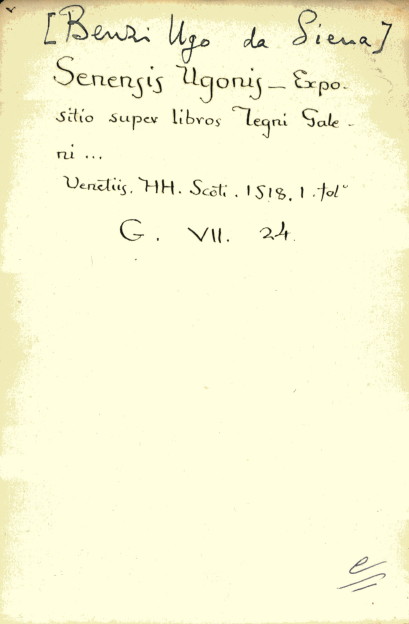 [Benzi Ugo da Siena]
Senensis Ugonis – Expo-
sitio super libros Tegni Gale-
ni ...
Venētiis. HH. Scōti. 1518. 1. folº
G. VII. 24.
e